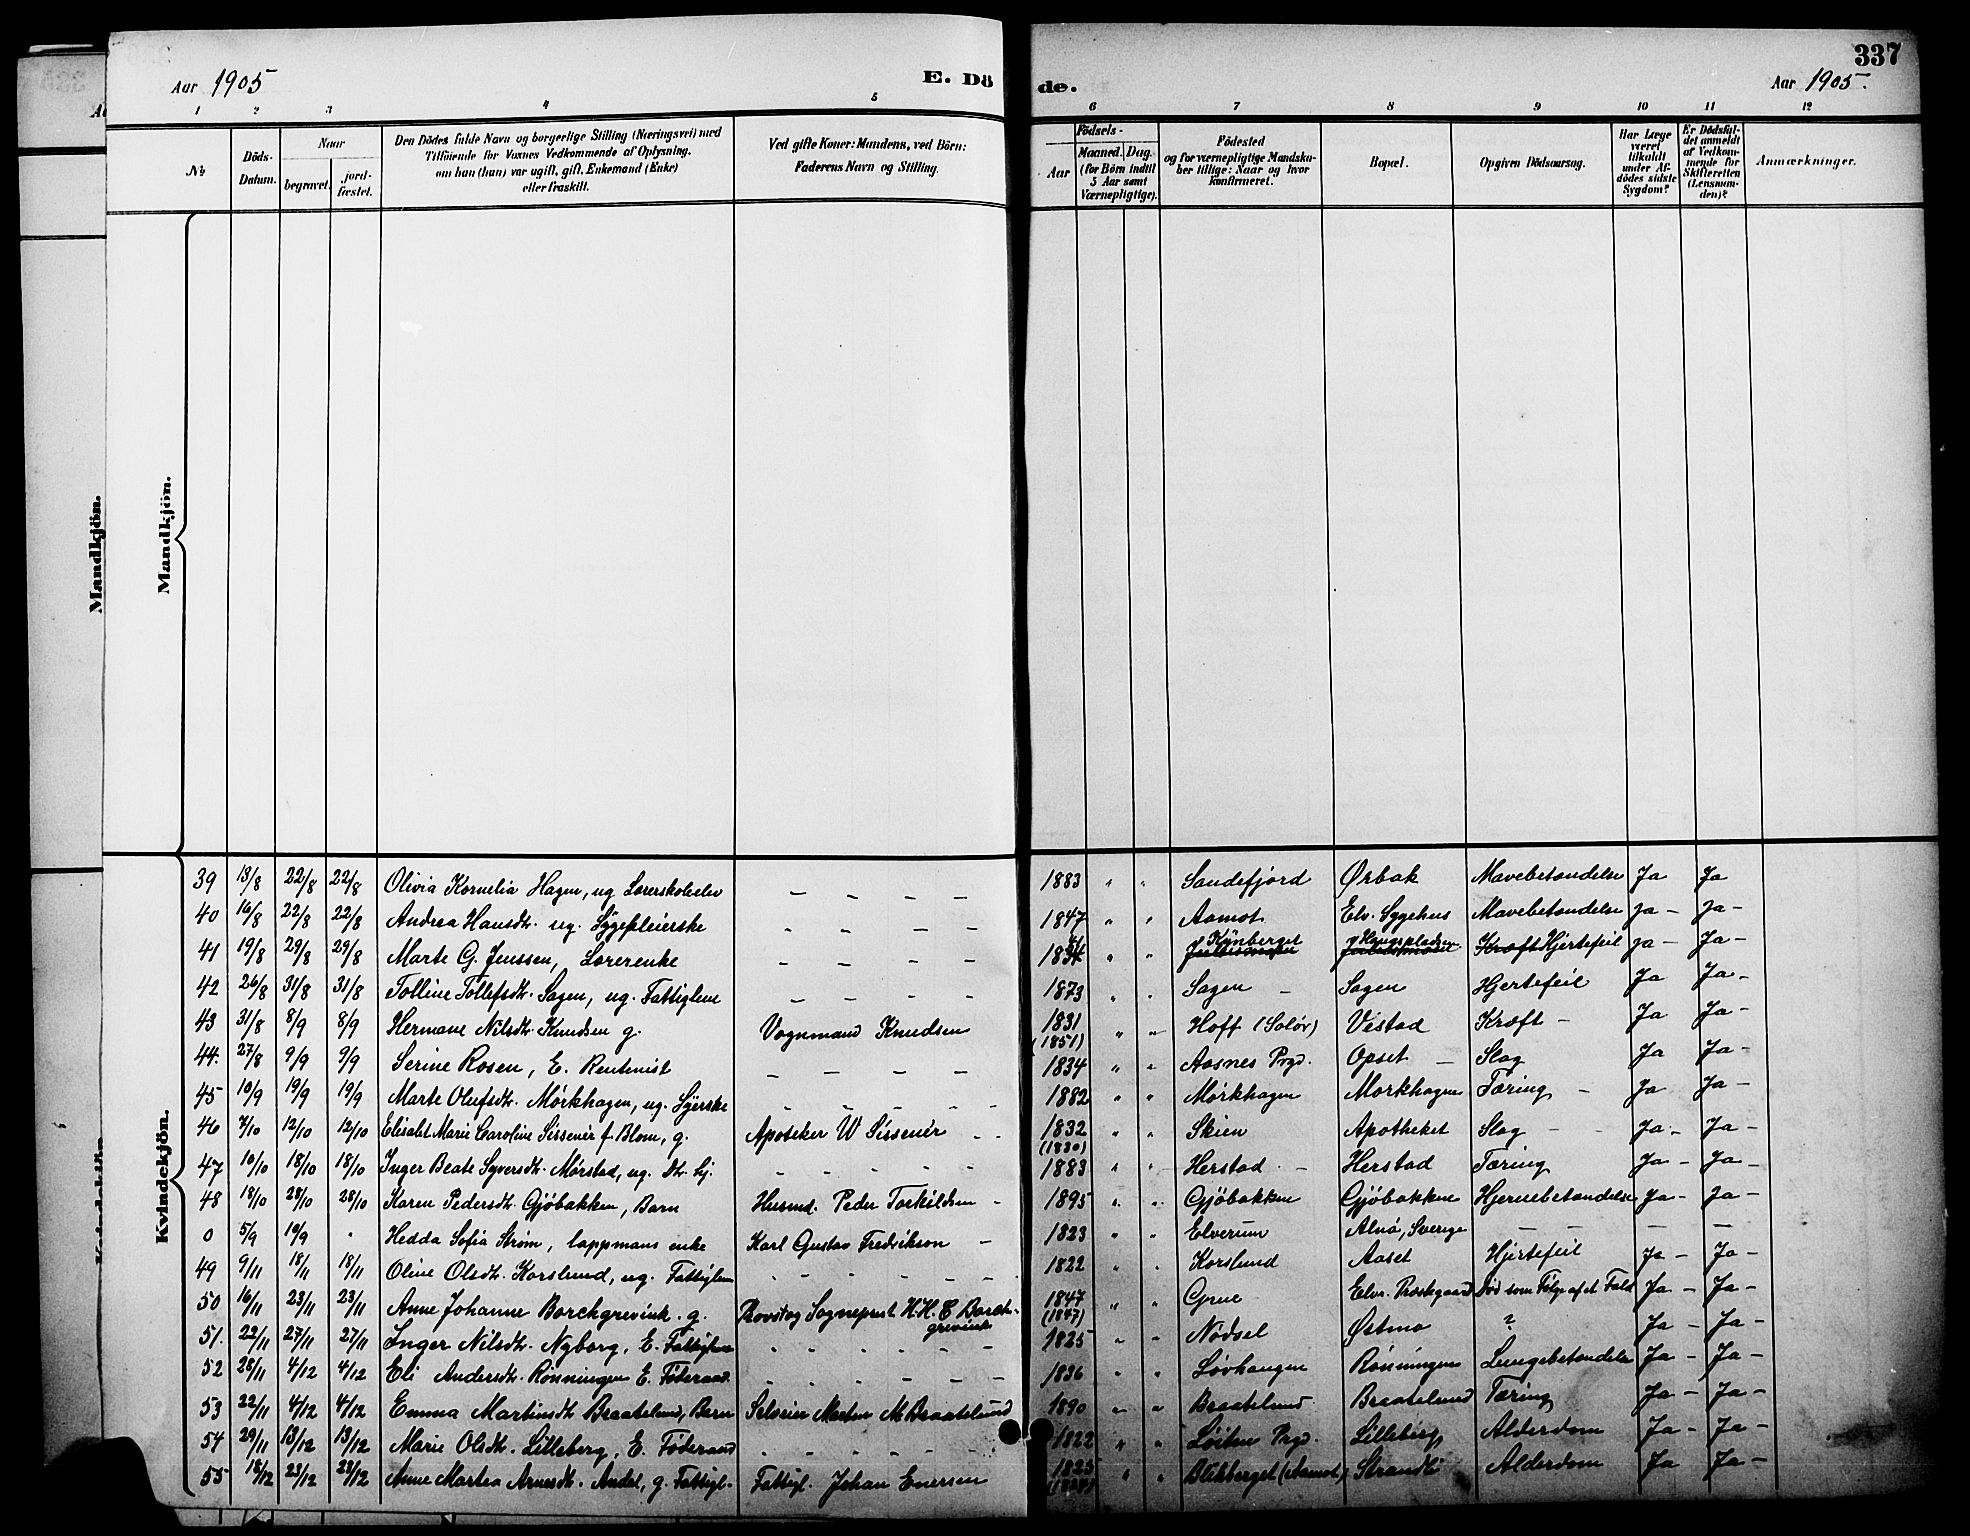 337
Aar 1905
E. Dö
de.
Aar 1905.
1 2 3 4 5 6 7 8 9 10 11 12
No
Döds-Datum.
Naar
begravet.
jord-fæstet.
Den Dödes fulde Navn og borgerlige Stilling (Næringsvei) med
Tilföiende for Voxnes Vedkommende af Oplysning,
om hun (han) var ugift, gift, Enkemand (Enke)
eller fraskilt.
Ved gifte Koner: Mandens, ved Börn:
Faderens Navn og Stilling.
Födsels-
Aar
Maaned. Dag.
(for Börn indtil
5 Aar samt
Værnepligtige).
Födested
og for værnepligtige Mandska-
ber tillige: Naar og hvor
konfirmeret.
Bopæl.
Opgiven Dödsaarsag.
Har Læge
været
tilkaldt
under Af-
dödes sidste
Sygdom?
Er Dödsfal-
det anmeldt
af Vedkom-
mende for
Skifteretten
(Lensman-
den)?
Anmærkninger.
Mandkjön.
Mandkjön.
Kvindekjön.
39 13/8 22/8 22/8 Olivia Kornelia Hagen, ug. Lærerskoleelev — — — 1883 " " Sandefjord Ørbak Mavebetændelse Ja Ja
40 16/8 22/8 22/8 Andrea Hansdt. ug. Sygepleierske - - - - 1847 " " Aamot Elv. Sygehus Mavebetændelse Ja - Ja -
41 19/8 29/8 29/8 Marte G. Jenssen, Lærerenke - - - - " " Kynberget Haugspladsen Kræft Hjertefeil Ja - Ja -
42 26/8 31/8 31/8 Tolline Tollefsdt. Sagen, ug. Fattiglem - - - - 1873 " " Sagen - Sagen Hjertefeil Ja Ja -
43 31/8 8/9 8/9 Hermane Nilsdt. Knudsen g. Vognmand Knudsen 1831 " " Hoff (Solør) Vestad Kræft - Ja Ja -
44. 27/8 9/9 9/9 Serine Rosen, E. Rentenist - - - - (1851) 1834 " " Aasnes Prgd. Opset - Slag Ja Ja -
45 10/9 19/9 19/9 Marte Olufsdt. Mørkhagen, ug. Syerske - - - - 1882 " " Mørkhagen Mørkhagen Tæring - Ja Ja -
46 7/10 12/10 12/10 Elisabet Marie Caroline Sissener f. Blom, g. Apoteker W Sissener - - 1832 " " Skien Apotheket Slag - - Ja - Ja -
47 10/10 18/10 18/10 Inger Beate Syversdt. Mørstad, ug. - - - - (1830) 1883 " " Herstad - Herstad Tæring Ja - Ja -
48 18/10 28/10 28/10 Karen Pedersdt. Gjöbakken, Barn Husmd. Peder Torkildsen - 1895 " " Gjöbakken Gjöbakken Hjernebetændelse Ja - Ja -
0 5/9 10/9 " Hedda Sofia Strøm, lappmans enke Karl Gustav Fredrikson - 1823 " " Elverum Alnö, Sverige - - - -
49 9/11 18/11 18/11 Oline Olsdt. Korslund, ug. Fattiglem - - - - 1822 " " Korslund Aaset Hjertefeil Ja - Ja -
50 16/11 23/11 23/11 Anne Johanne Borchgrevink. g. Provst og Sogneprest H. H. C Borch-
grevink 1847 " " Grue Elv. Prestegaard Död som Fölge af et Fald Ja - Ja -
51. 22/11 27/11 27/11 Inger Nilsdt. Nyborg, E. Fattiglem - - - - (1847) 1825 " " Nödsel Østmo ? Ja - Ja -
52 28/11 4/12 4/12 Eli Andersdt. Rönningen E. Föderaad. - - - - 1836 " " Løvhaugen Rønningen Lungebetændelse Ja - Ja -
53 22/11 4/12 4/12 Emma Martinsdt. Braatelund, Barn Selveier Martin M. Braatelund 1890 " " Braatelund Braatelund Tæring Ja - Ja -
54 29/11 13/12 13/12 Marie Olsdt. Lilleberg, E. Föderaad - - - - 1822 " " Løiten Prgd. Lilleberg Alderdom Ja - Ja -
55 18/12 23/12 23/12 Anne Martea Arnesdt. Andel, g. Fattigl. Fattigl. Johan Enersen 1825 " " Blikberget (Aamot) Strandli Alderdom Ja Ja -